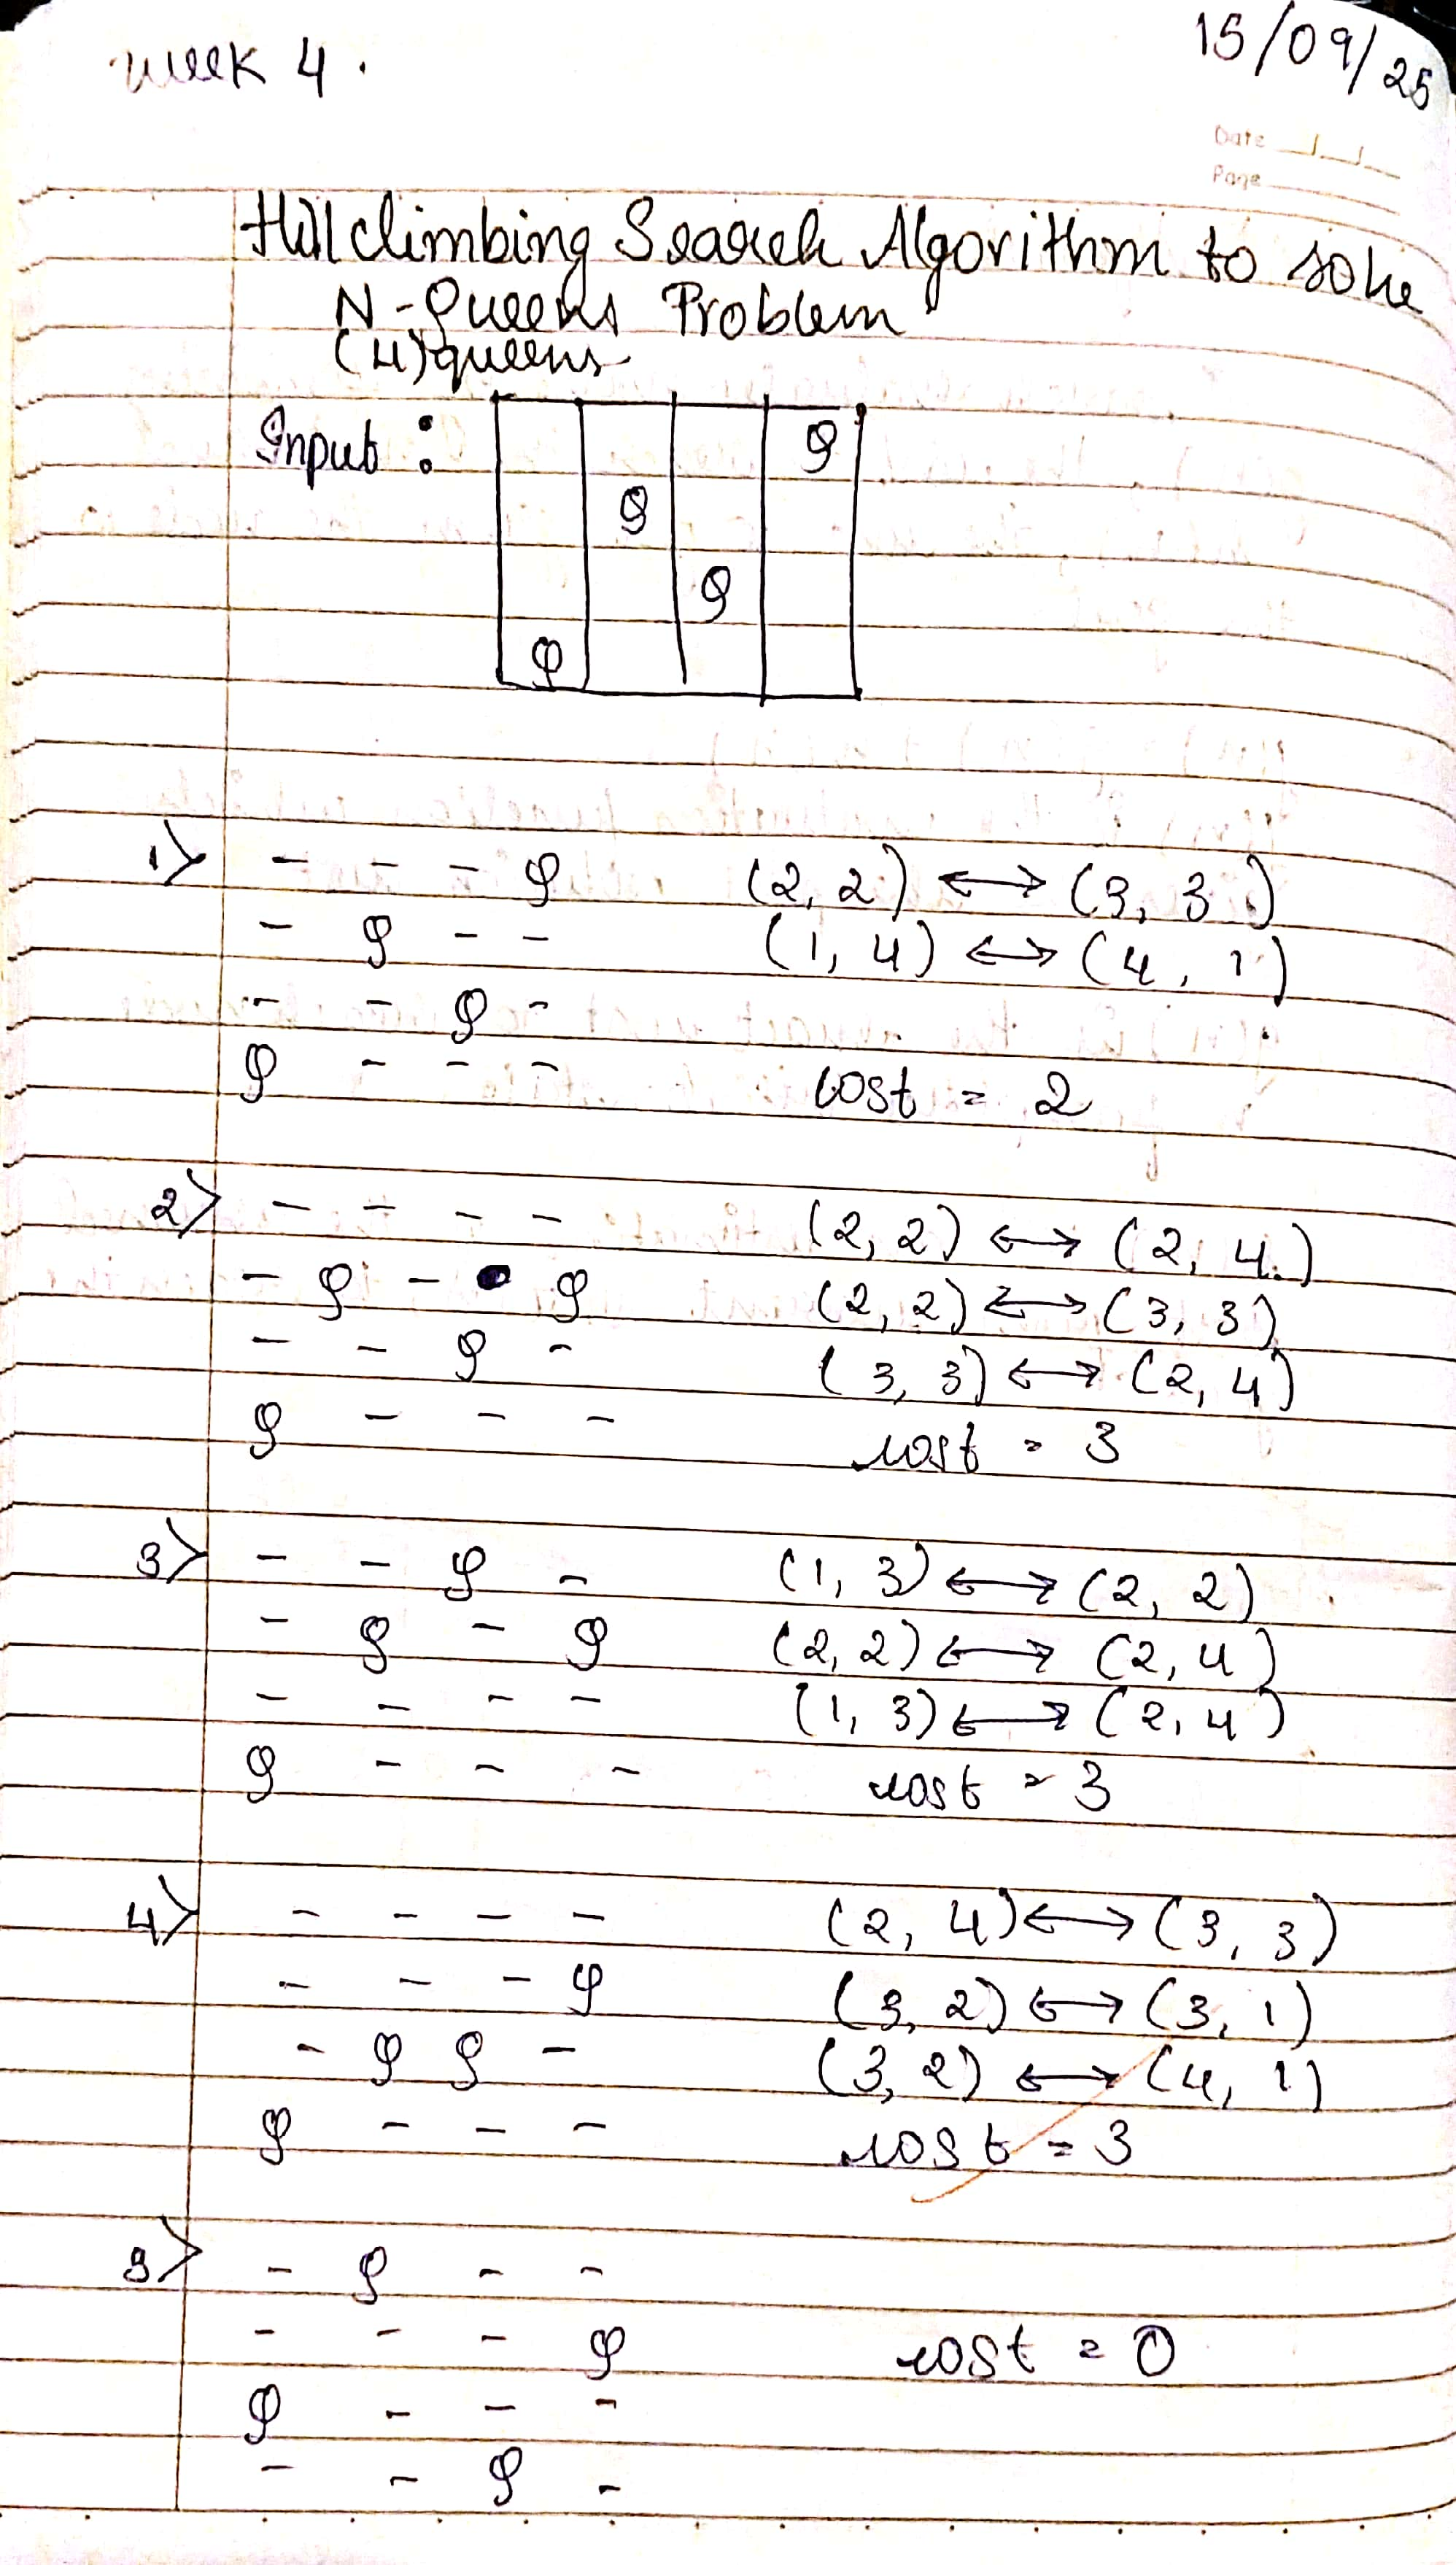 week 4.
15/09/25
Date
Page
Hill climbing Search Algorithm to solve
N-Queens Problem
(4) queens
Input :
Q
Q
Q
Q
1> - - - Q (2, 2) ↔ (3, 3)
- Q - - (1, 4) ↔ (4, 1)
- - Q -
Q - - - cost = 2
2> - - - - (2, 2) ↔ (2, 4)
- Q - Q (2, 2) ↔ (3, 3)
- - Q - (3, 3) ↔ (2, 4)
Q - - - cost = 3
3> - - Q - (1, 3) ↔ (2, 2)
- Q - Q (2, 2) ↔ (2, 4)
- - - - (1, 3) ↔ (2, 4)
Q - - - cost = 3
4> - - - - (2, 4) ↔ (3, 3)
- - - Q (3, 2) ↔ (3, 1)
- Q Q - (3, 2) ↔ (4, 1)
Q - - - cost = 3
5> - Q - -
- - - Q cost = 0
Q - - -
- - Q -